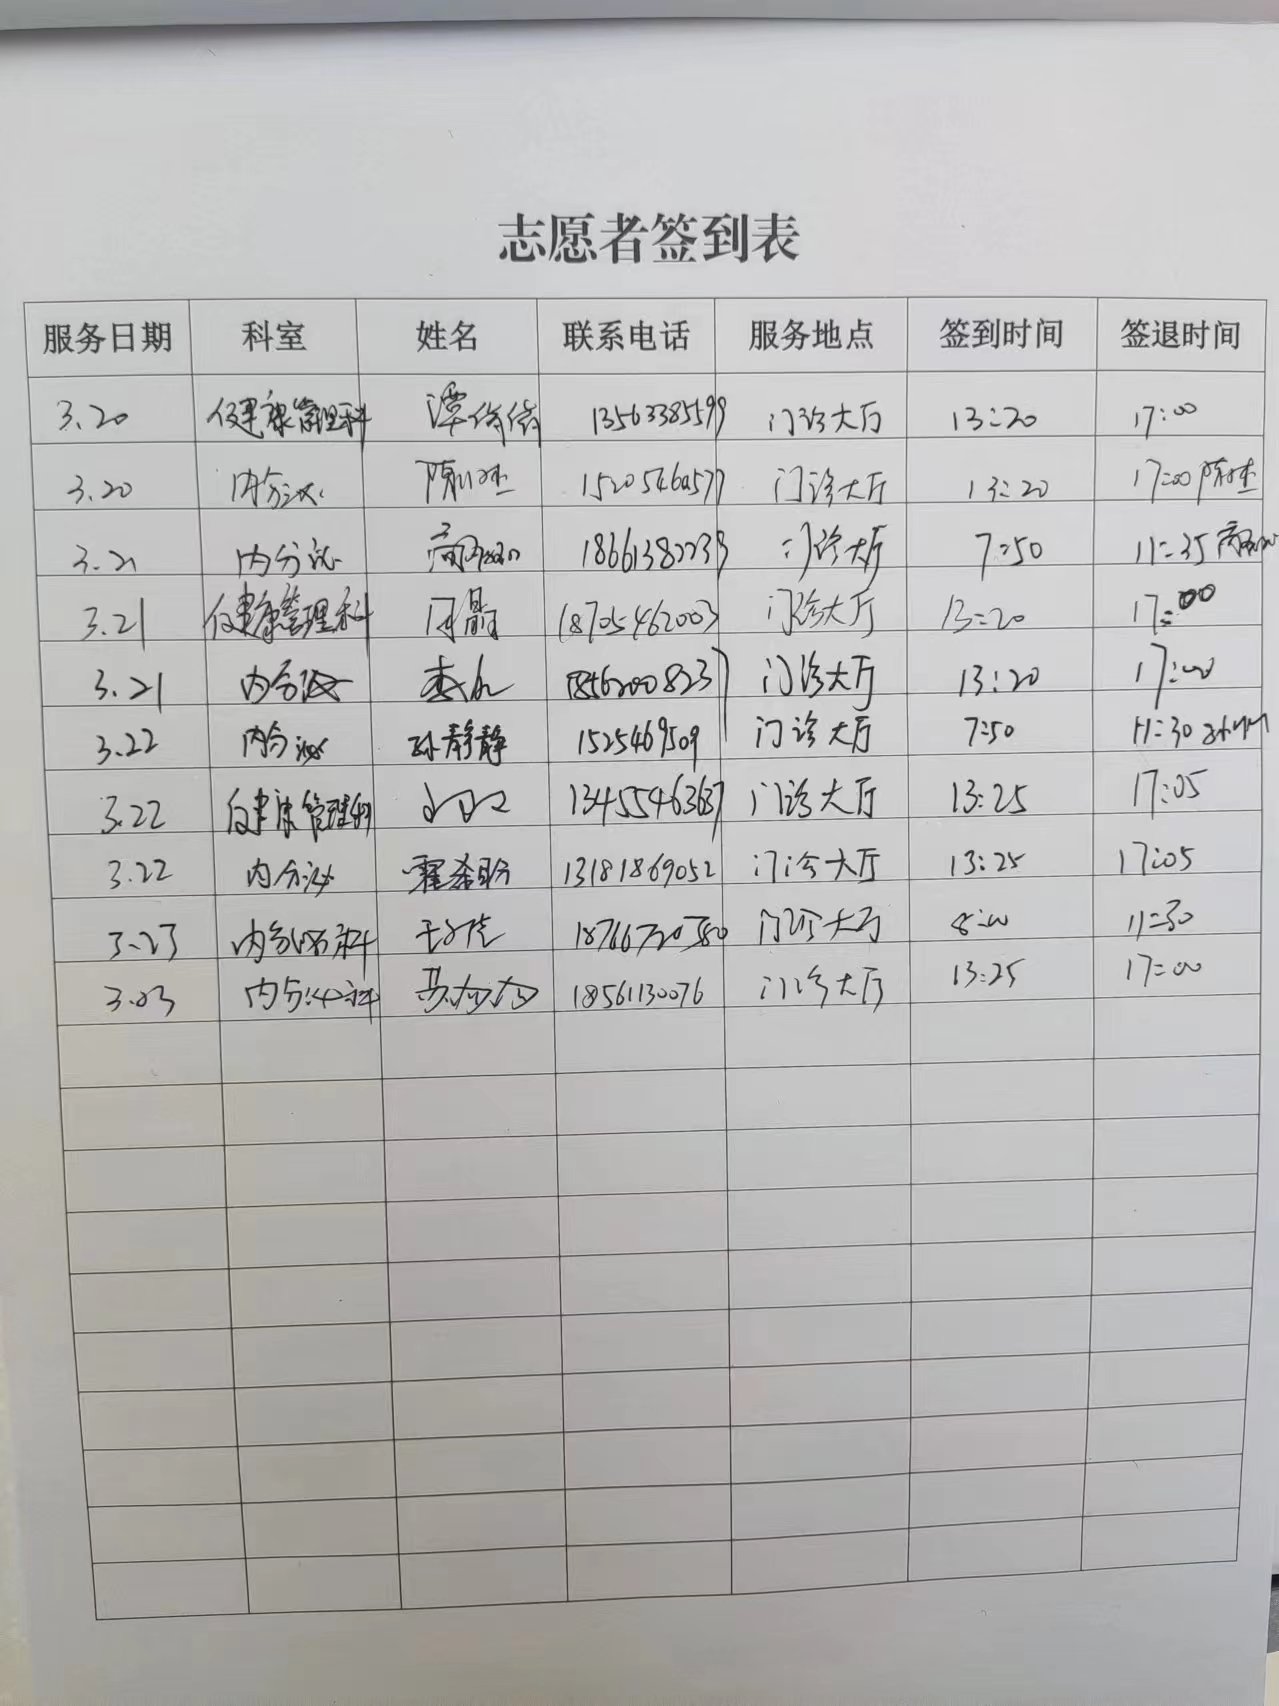 志愿者签到表
服务日期 科室 姓名 联系电话 服务地点 签到时间 签退时间
3.20 健康管理科 谭倩倩 13563385599 门诊大厅 13:20 17:00
3.20 内分泌 门诊大厅 13:20 17:00
3.21 内分泌 18661382239 门诊大厅 7:50 11:35
3.21 健康管理科 闫晶 18705462003 门诊大厅 13:20 17:00
3.21 内分泌 门诊大厅 13:20 17:00
3.22 内分泌 孙静静 1525469509 门诊大厅 7:50 11:30
3.22 健康管理科 13455463637 门诊大厅 13:25 17:05
3.22 内分泌 13181869052 门诊大厅 13:25 17:05
3.23 内分泌科 18766720380 门诊大厅 8:00 11:30
3.23 内分泌科 18561130076 门诊大厅 13:25 17:00